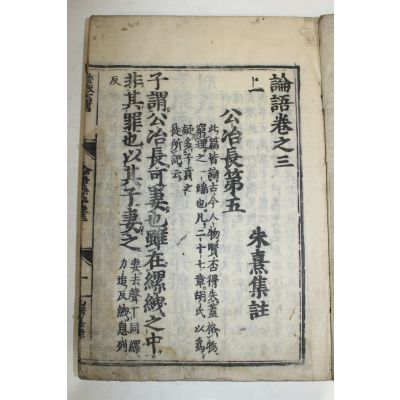 論語卷之三
上二
朱熹集註
公冶長第五
此篇皆論古今人物賢否得失蓋格物
窮理之一端也凡二十七章胡氏以爲
疑多子貢之
徒所記云
子謂公冶長可妻也雖在縲絏之中
非其罪也以其子妻之
妻去聲下同縲
力追反絏息列
反